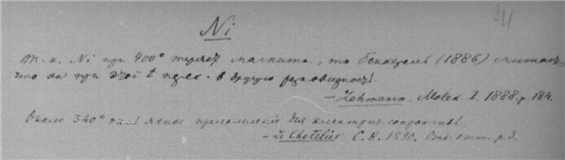 Ni
Т. к. Ni при 400° теряет магнит., то Беккерель (1886) считает
что он при этой t перех. в другую разновидность.
— Lehmann. Molek. I. 1888. p. 184.
Около 340° ясное преломление для электрич. сопротивл.
— Le Chatelier C. R. 1890. отт. p. 3.